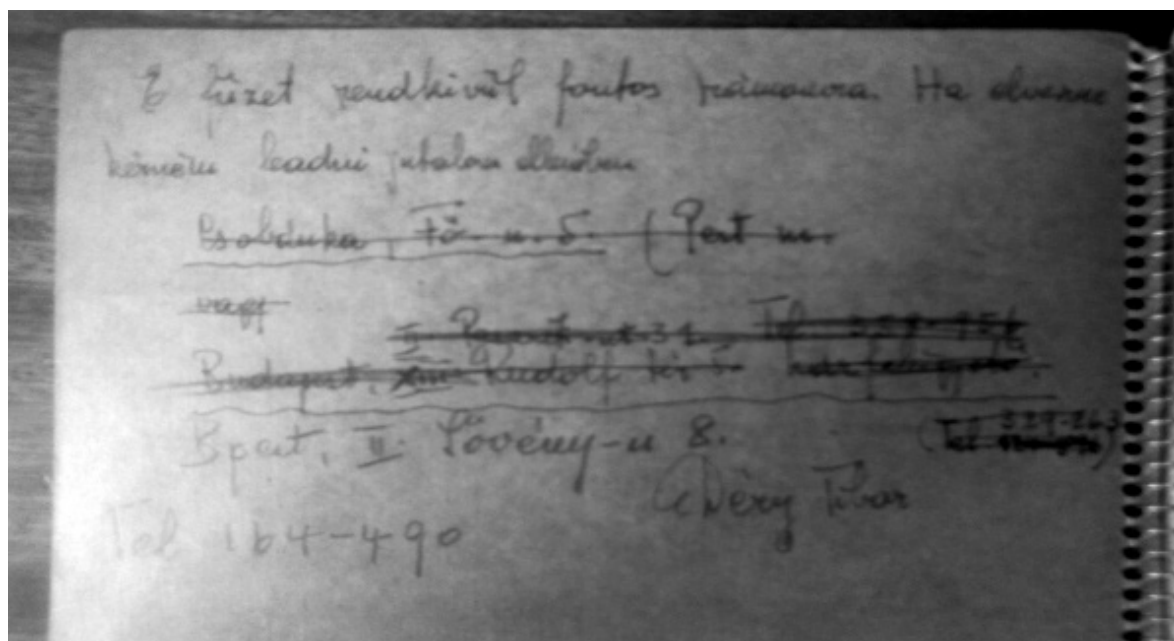 E füzet rendkivül fontos számomra. Ha elveszne
kérném leadni jutalom ellenében
Csobánka, Fő u. 5. (Pest m.
vagy
II 31 Tel.
Budapest, XIII Rudolf tér 5.
Bpest, II. Lövény-u 8. (Tel 339-263)
Déry Tibor
Tel 164-490